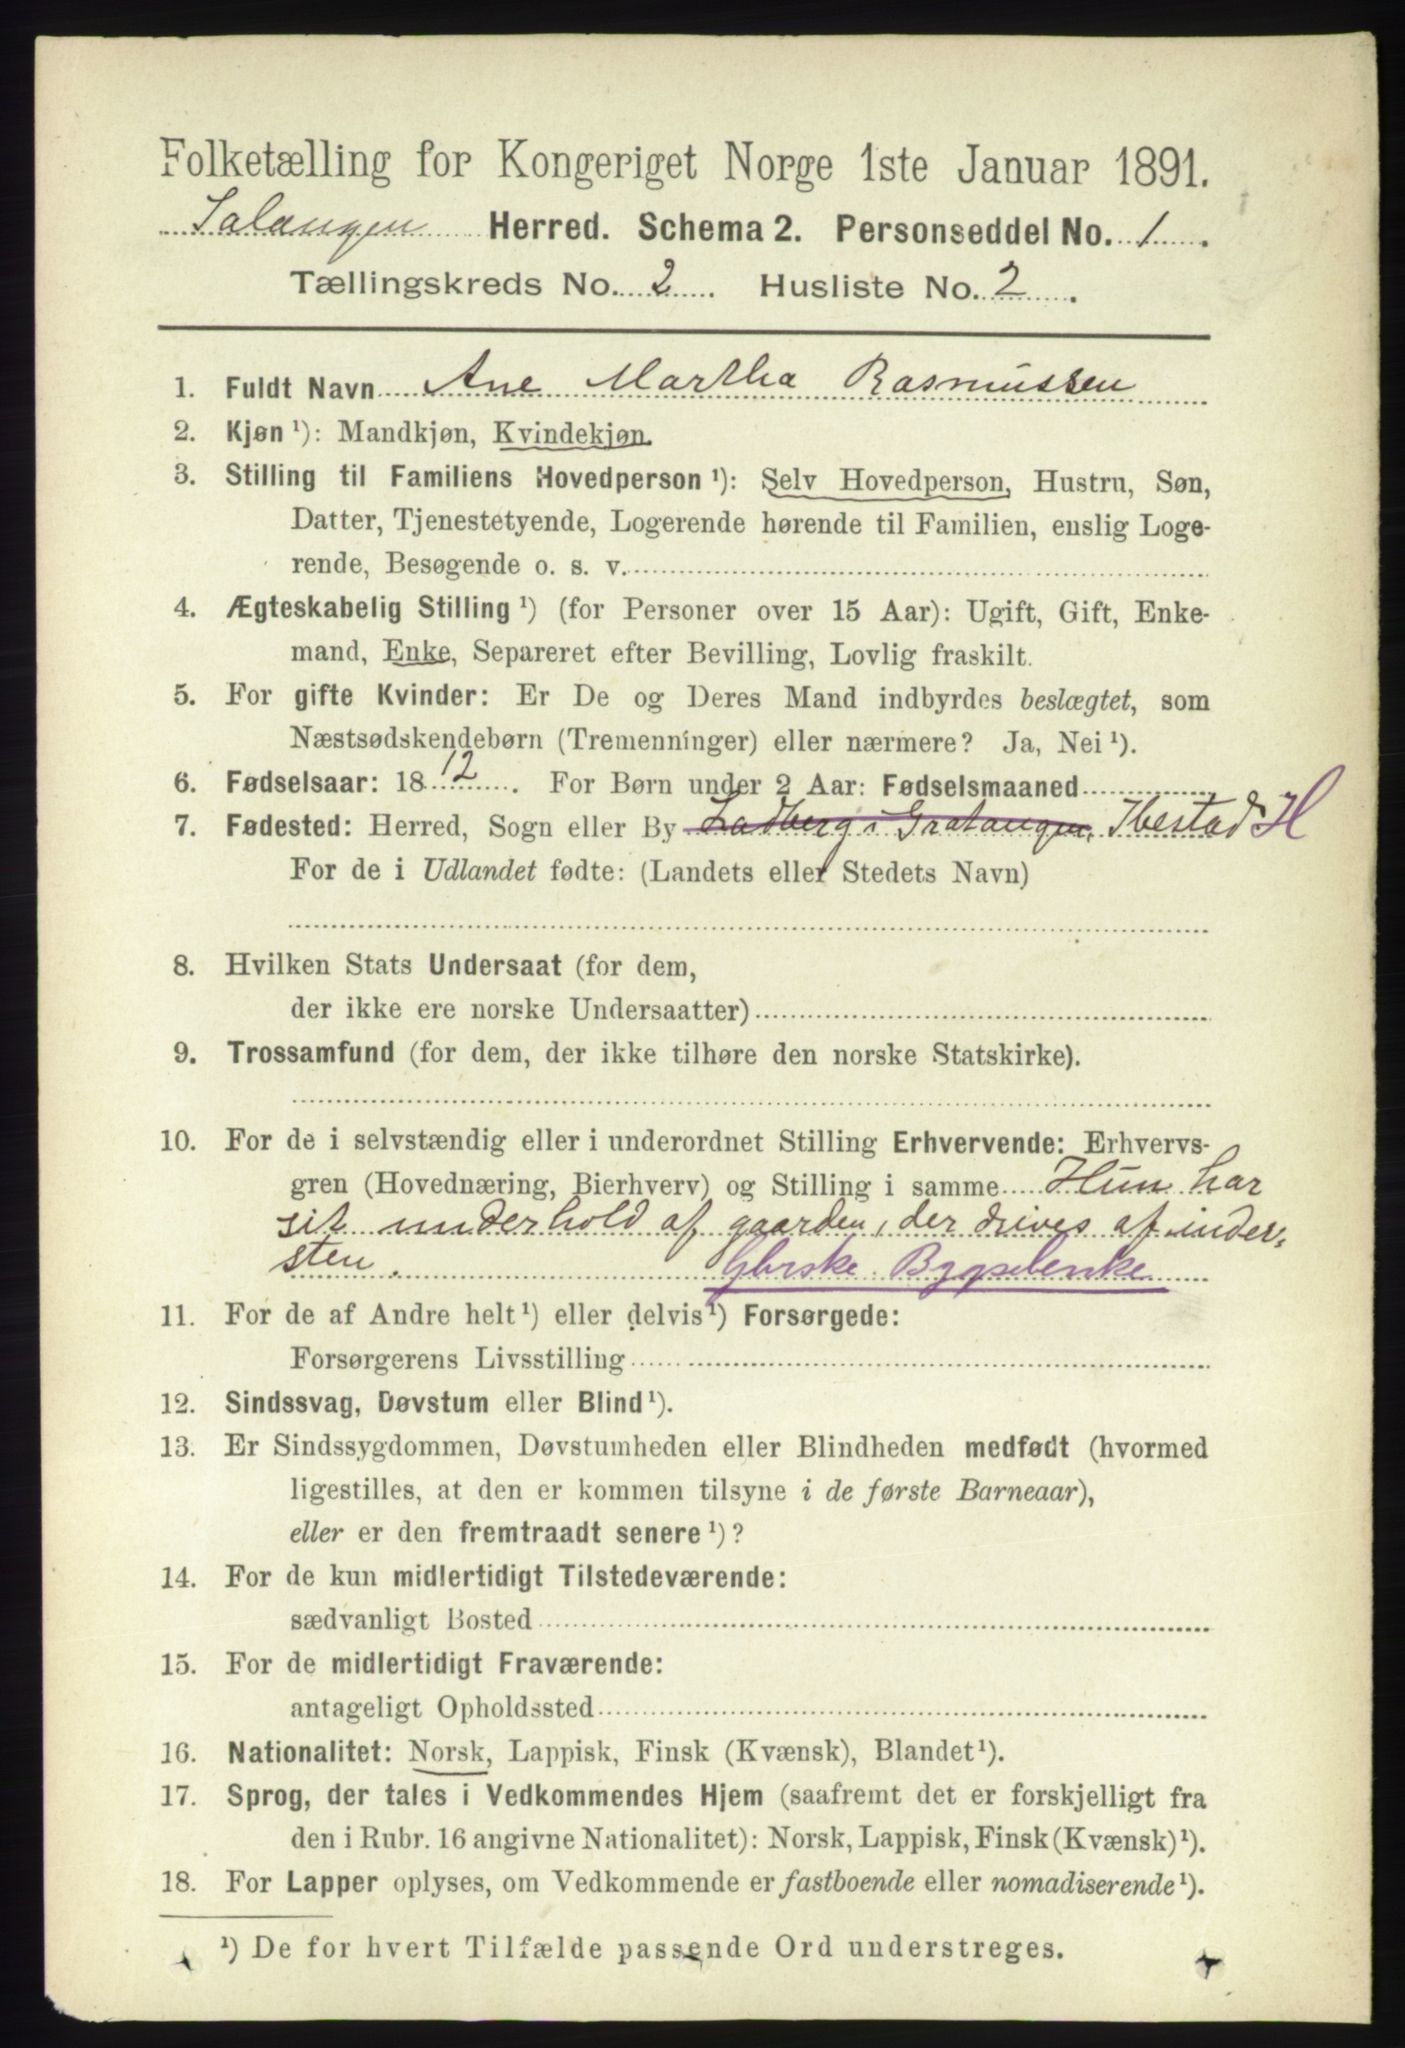 Folketælling for Kongeriget Norge 1ste Januar 1891.
Salangen Herred. Schema 2. Personseddel No. 1.
Tællingskreds No. 2. Husliste No. 2.
1. Fuldt Navn Ane Martha Rasmussen
2. Kjøn ¹): Mandkjøn, Kvindekjøn.
3. Stilling til Familiens Hovedperson ¹): Selv Hovedperson, Hustru, Søn,
Datter, Tjenestetyende, Logerende hørende til Familien, enslig Loge-
rende, Besøgende o. s. v.
4. Ægteskabelig Stilling ¹) (for Personer over 15 Aar): Ugift, Gift, Enke-
mand, Enke, Separeret efter Bevilling, Lovlig fraskilt.
5. For gifte Kvinder: Er De og Deres Mand indbyrdes beslægtet, som
Næstsødskendebørn (Tremenninger) eller nærmere? Ja, Nei ¹).
6. Fødselsaar: 1812. For Børn under 2 Aar: Fødselsmaaned
7. Fødested: Herred, Sogn eller By i Gratangen, Ibestad H
For de i Udlandet fødte: (Landets eller Stedets Navn)
8. Hvilken Stats Undersaat (for dem,
der ikke ere norske Undersaatter)
9. Trossamfund (for dem, der ikke tilhøre den norske Statskirke).
10. For de i selvstændig eller i underordnet Stilling Erhvervende: Erhvervs-
gren (Hovednæring, Bierhverv) og Stilling i samme Hun har
sit underhold af gaarden, der drives af inder-
sten. Bygselenke
11. For de af Andre helt ¹) eller delvis ¹) Forsørgede:
Forsørgerens Livsstilling
12. Sindssvag, Døvstum eller Blind ¹).
13. Er Sindssygdommen, Døvstumheden eller Blindheden medfødt (hvormed
ligestilles, at den er kommen tilsyne i de første Barneaar),
eller er den fremtraadt senere ¹)?
14. For de kun midlertidigt Tilstedeværende:
sædvanligt Bosted
15. For de midlertidigt Fraværende:
antageligt Opholdssted
16. Nationalitet: Norsk, Lappisk, Finsk (Kvænsk), Blandet ¹).
17. Sprog, der tales i Vedkommendes Hjem (saafremt det er forskjelligt fra
den i Rubr. 16 angivne Nationalitet): Norsk, Lappisk, Finsk (Kvænsk) ¹).
18. For Lapper oplyses, om Vedkommende er fastboende eller nomadiserende ¹).
¹) De for hvert Tilfælde passende Ord understreges.